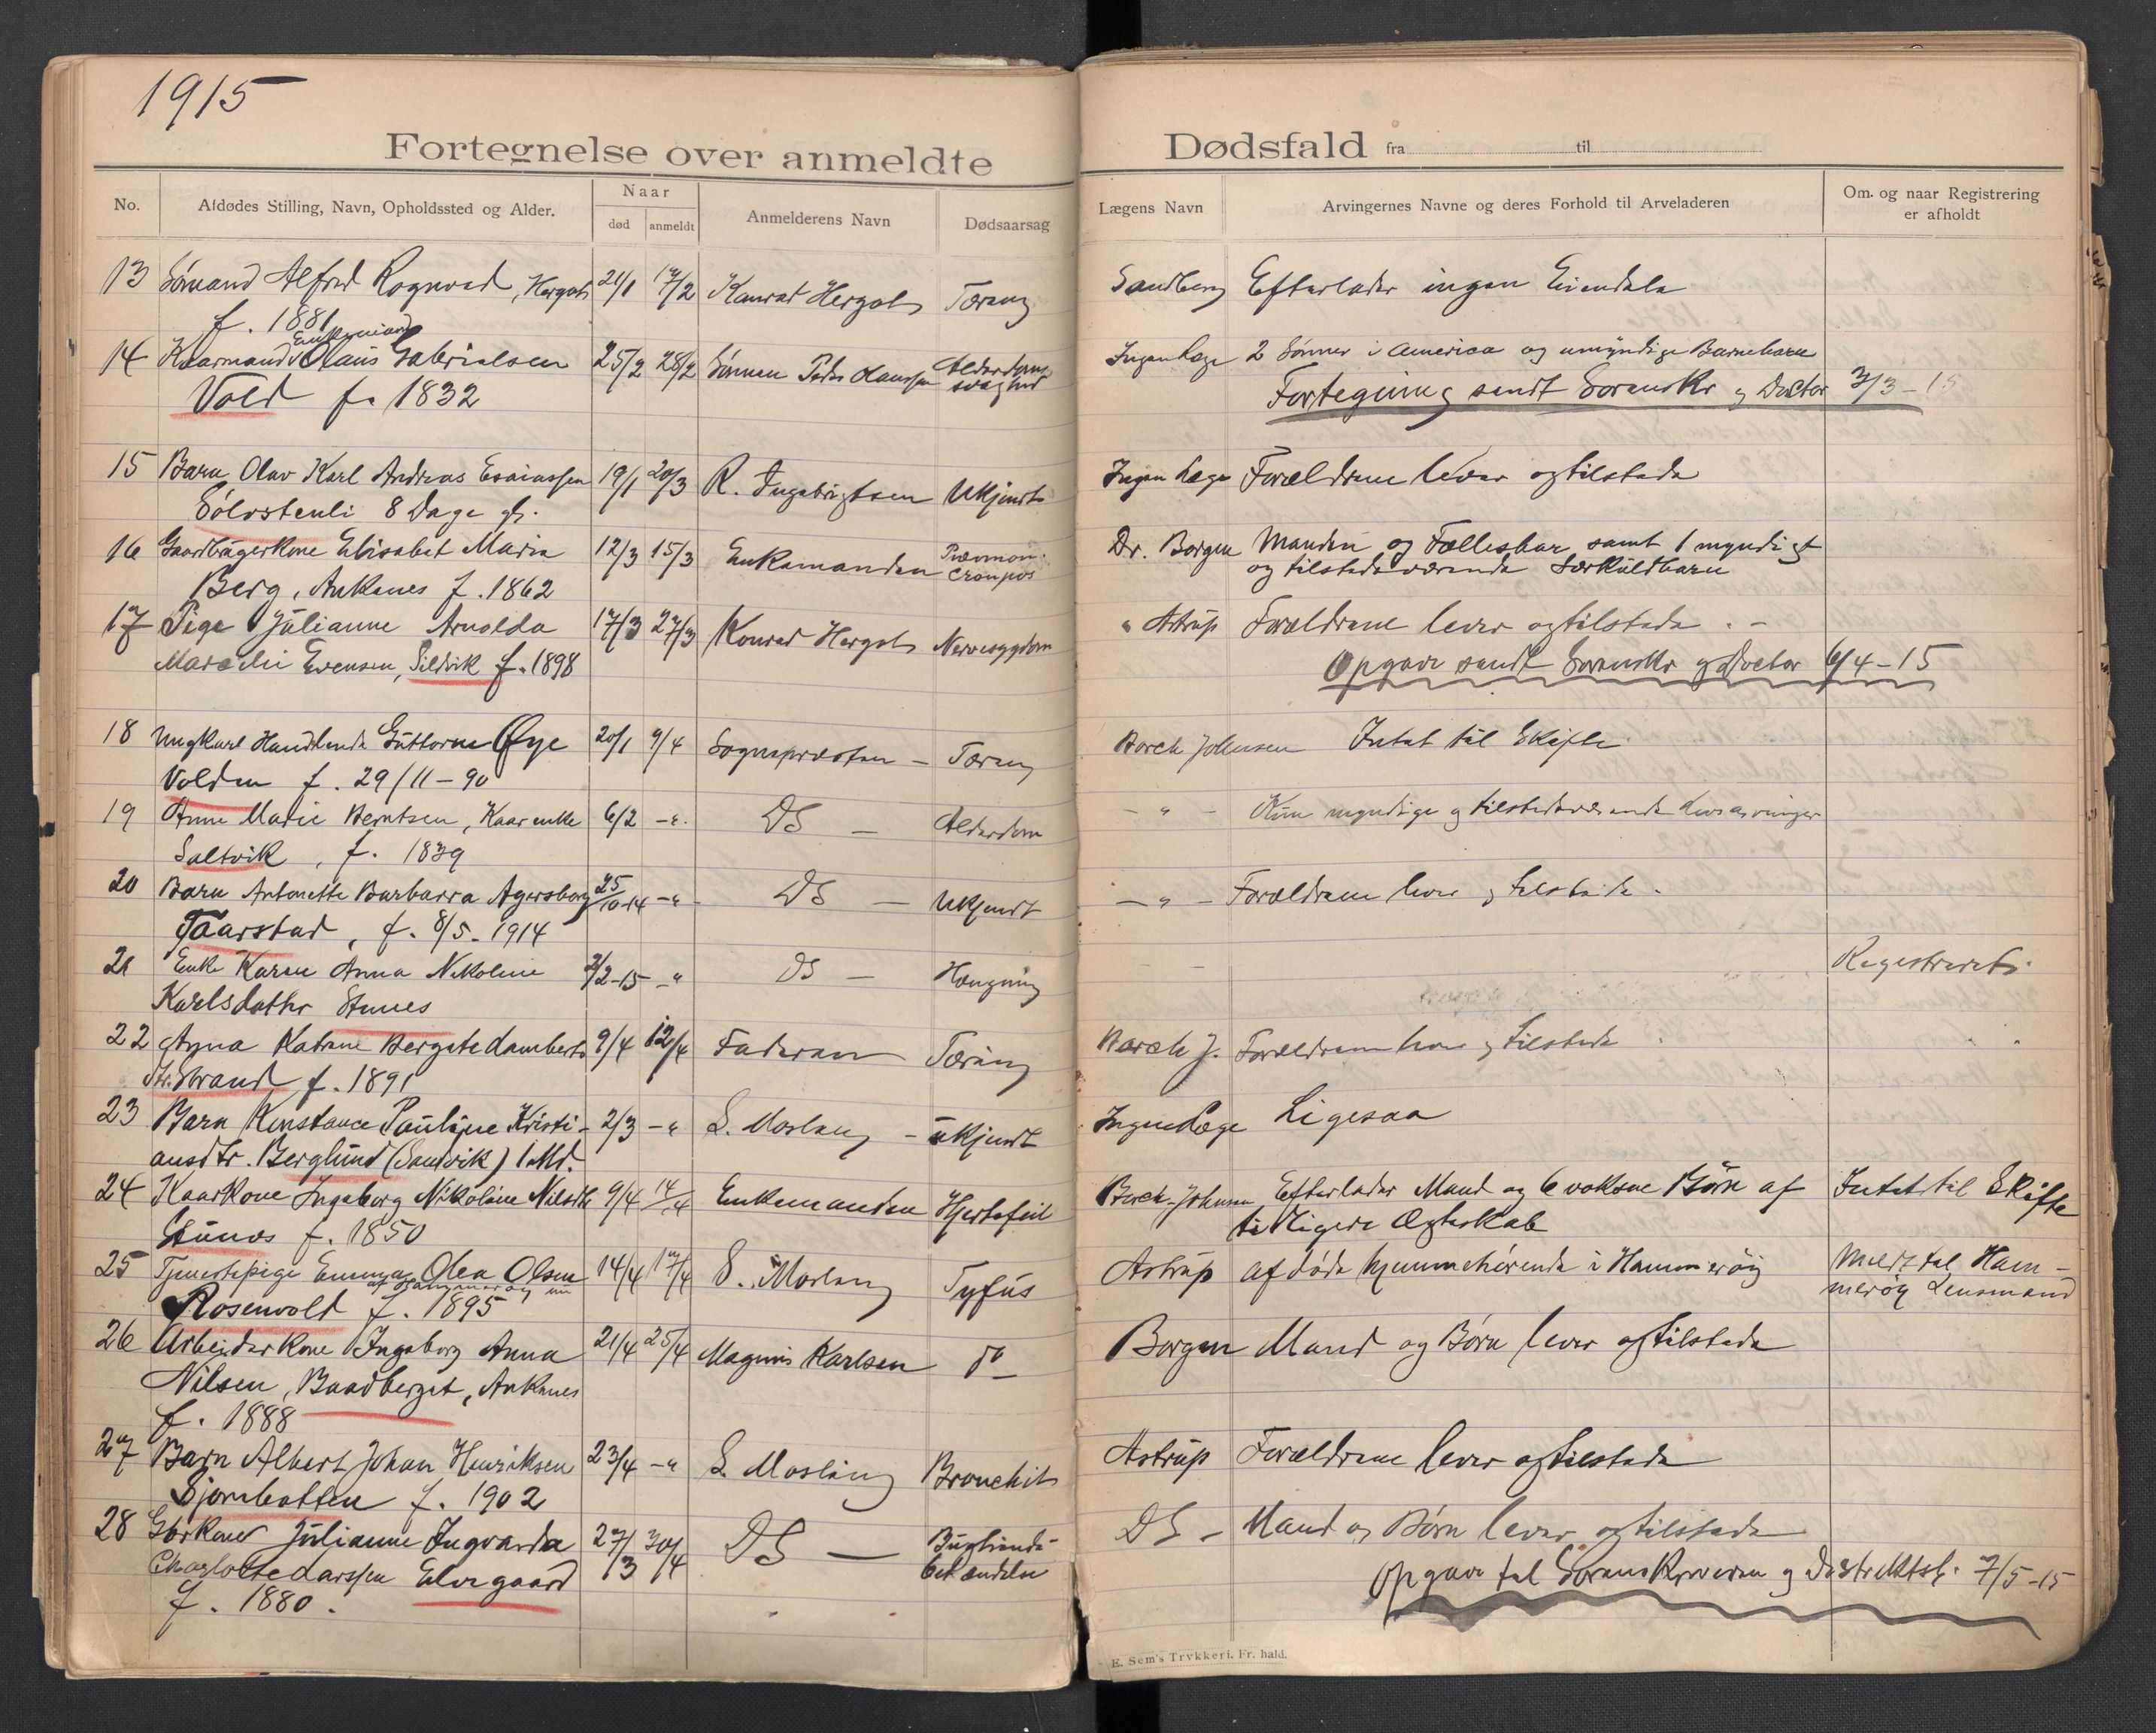 1915
Fortegnelse over anmeldte Dødsfald fra til
No. Afdødes Stilling, Navn, Opholdssted og Alder. Naar død anmeldt Anmelderens Navn Dødsaarsag Lægens Navn Arvingernes Navne og deres Forhold til Arveladeren Om. og naar Registrering er afholdt
13 Sømand Alfred Rognvald, Hergots 21/1 17/2 Konrad Hergots Tæring Sandberg Efterlader ingen Eiendele
f. 1881
Enkemand
14 Kaarmand Olaus Gabrielsen 25/2 28/2 Sønnen Peder Olaussen Alderdoms Ingen Læge 2 Sønner i America og umyndige Barnebarn
Vold f. 1832 svaghed Fortegning sendt Sorenskr og Doctor 3/3-15
15 Barn Olav Karl Andreas Esaiassen 19/1 20/3 R. Ingebrigtsen Ukjendt Ingen Læge Forældrene lever og tilstede
Sølvstenli 8 Dage gl.
16 Gaardbrugerkone Elisabet Maria 12/3 15/3 Enkemanden Pnevmoni Dr. Borgen Manden og Fællesbar samt 1 myndigt
Berg, Ankenes f. 1862 Croupos og tilstedeværende Særkuldbarn
17 Pige Julianne Arnolda 17/3 27/3 Konrad Hergots Nervesygdom " Astrup Forældrene lever og tilstede. -
Evensen, Sildvik f. 1898 Opgave sendt Sorenskr og Doctor 6/4-15
18 Ungkarl Handlende Guttorm Øye 20/1 9/4 Sognepresten - Tæring Borch Johnsen Intet til Skifte
Volden f. 29/11-90
19 Anne Marie Berntsen, Kaarenke 6/2 -"- DS - Alderdom - " - Kun myndige og tilstedeværende Livsarvinger
Saltvik, f. 1839
20 Barn Antonette Barbarra Agersborg 25/10-14 -"- DS - Ukjendt - " - Forældrene lever og tilstede.
Taarstad, f. 8/5-1914
21 Enke Karen Anna Nikoline 3/2-15 -" DS - Hængning Registreret.
Karlsdatter Stunes
22 Agna Katrine Bergete Lamberts 9/4 12/4 Faderen Tæring Borch J. Forældrene lever og tilstede
Strand f. 1891
23 Barn Konstance Pauline Kristi- 2/3 -" L. Moslang - ukjendt Ingen Læge Ligesaa
ansdtr. Berglund (Sandvik) 1 Md.
24 Kaarkone Ingeborg Nikoline Nilsdtr 9/4 14/4 Enkemanden Hjertefeil Borch-Johnsen Efterlader Mand og 6 voksne Børn af Intet til Skifte
Stunes f. 1850 tidligere Ægteskab
25 Tjenestepige Emma Olea Olsen 14/4 17/4 S. Moslang Tyfus Astrup afdøde hjemmehørende i Hammerøy Meldt til Ham-
af Hammerøy
Rosenvold f. 1895 merøy Lensmand
26 Arbeiderkone Ingeborg Anna 21/4 25/4 Magnus Karlsen do Borgen Mand og Børn lever og tilstede
Nilsen, Baadberget, Ankenes
f. 1888
27 Barn Albert Johan Henriksen 23/4 -" L. Moslang Bronchit Astrup Forældrene lever og tilstede
Sjombotten f. 1902
28 Gbrkone Julianne Ingvarda 27/3 30/4 DS - Bughinde- DS - Mand og Børn lever og tilstede
Charlotte Larssen Elvegaard betændelse Opgave til Sorenskriveren og Distriktsl. 7/5-15
f. 1880.
E. Sem's Trykkeri. Fr. hald.